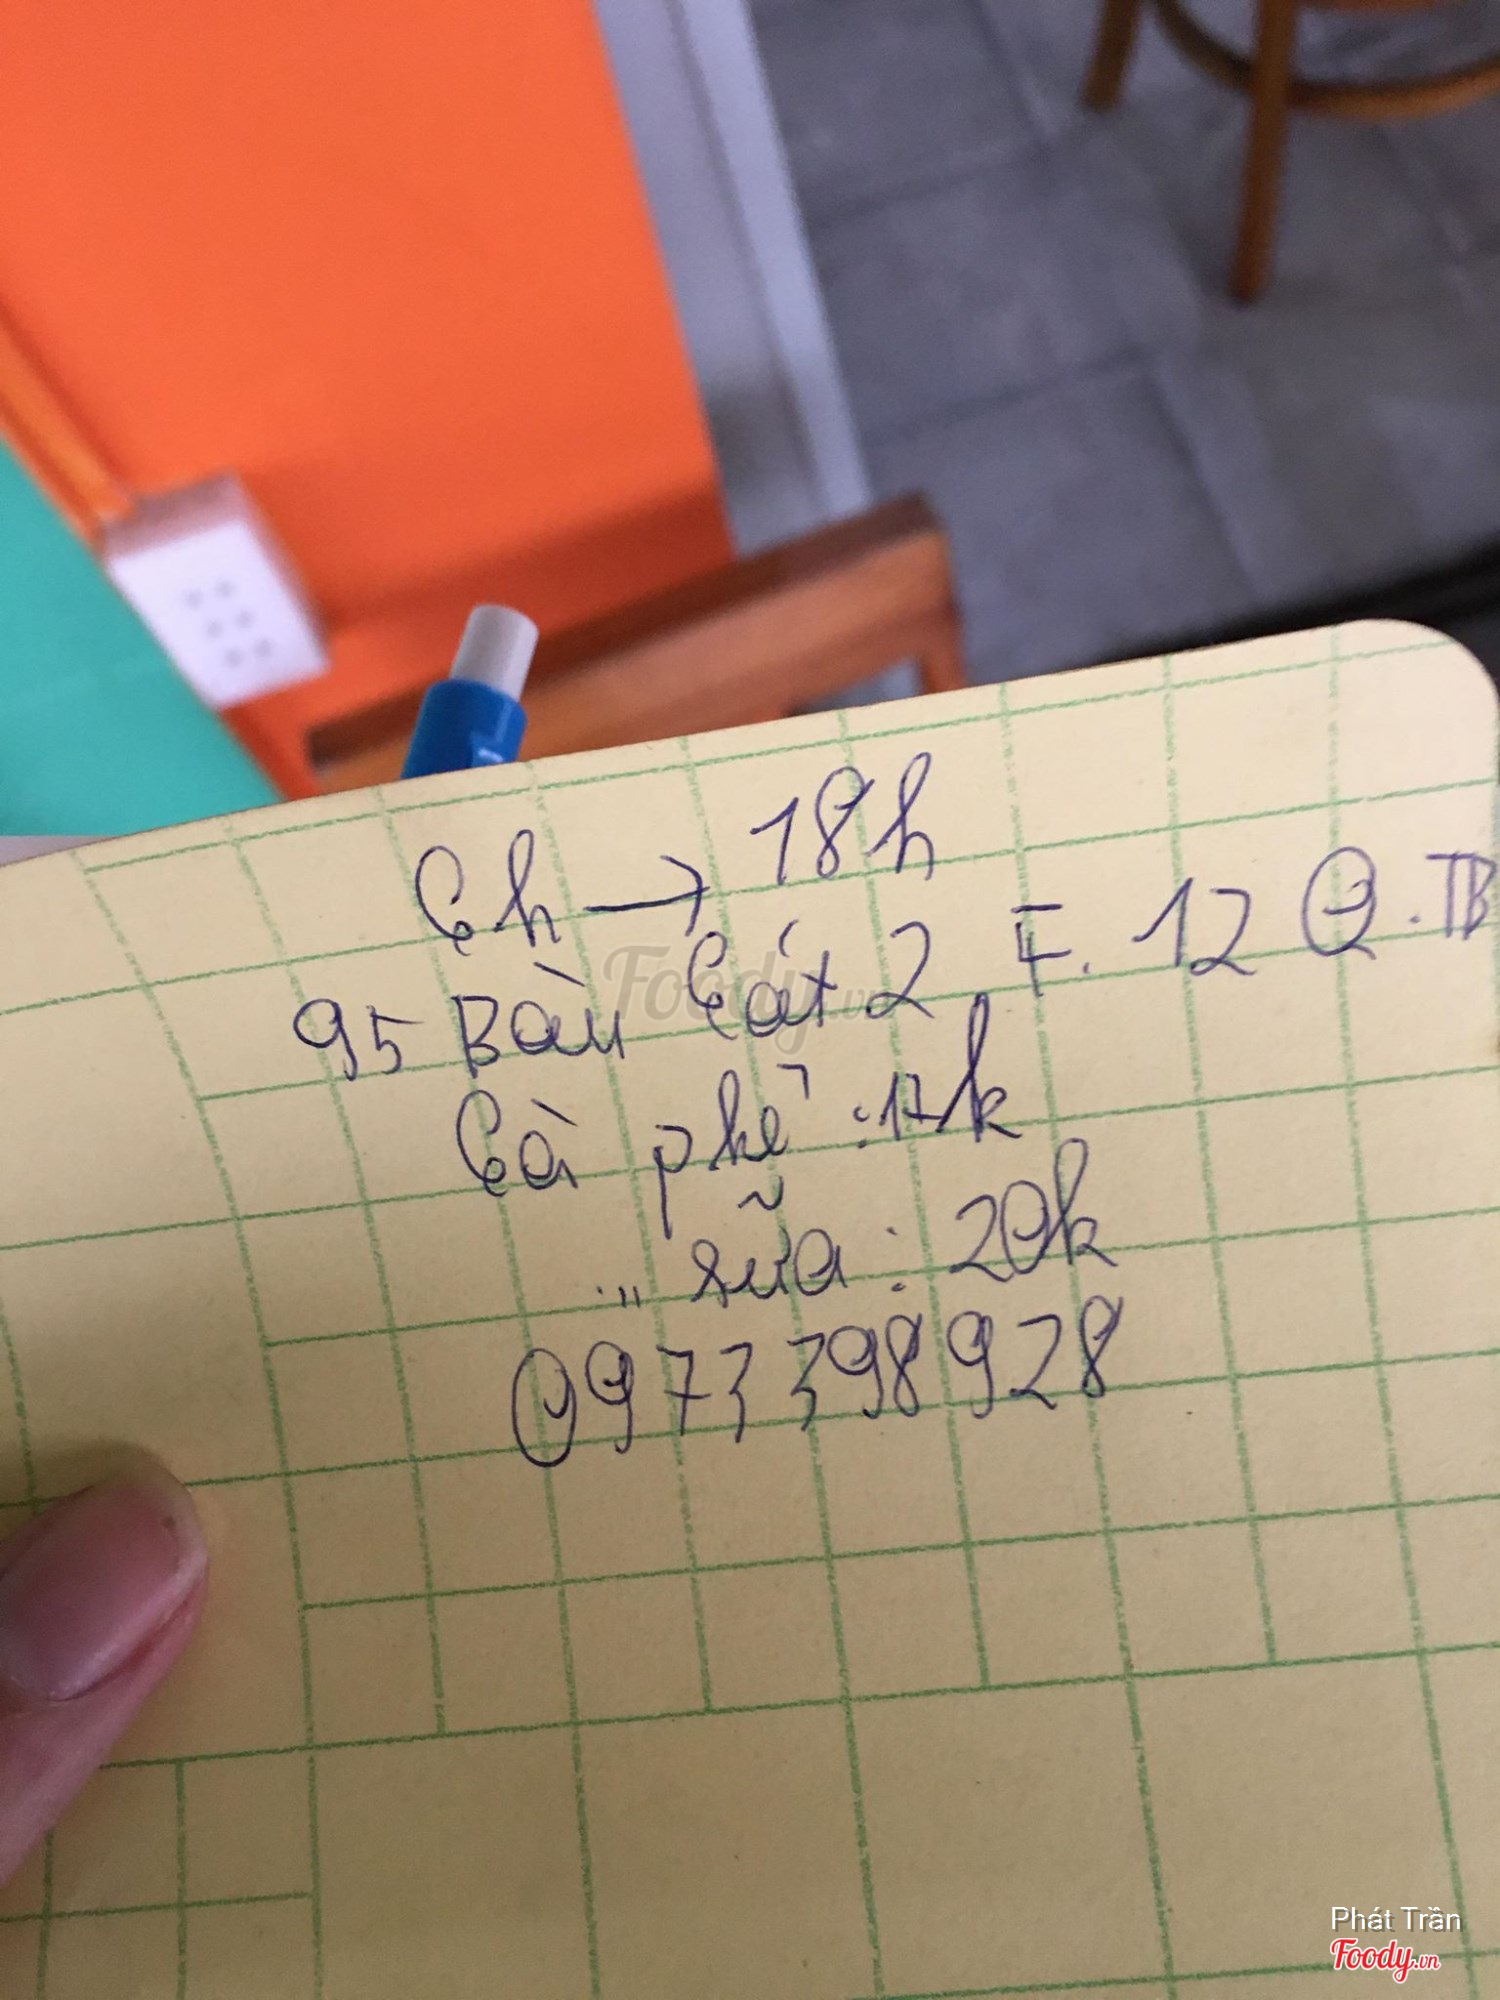 6h → 18h
95 Bàu Cát 2, F. 12 Q. TB
Cà phê : 17k
... sữa : 20k
0973 398 928
Foody.vn
Phát Trần
Foody.vn